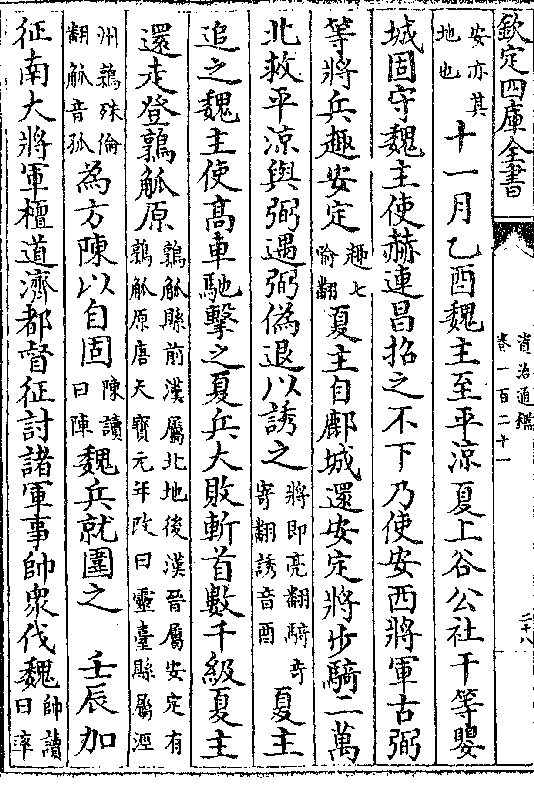 欽定四庫全書
資治通鑑
卷一百二十一
二十八
安亦其
地也
十一月乙酉魏主至平涼夏上谷公社干等嬰
城固守魏主使赫連昌招之不下乃使安西將軍古弼
等將兵趣安定
趣七
喻翻
夏主自鄜城還安定將步騎二萬
北救平涼與弼遇弼偽退以誘之
將即亮翻騎奇
寄翻誘音酉
夏主
追之魏主使髙車馳擊之夏兵大敗斬首數千級夏主
還走登鶉觚原
鶉觚縣前漢屬北地後漢晉屬安定有
鶉觚原唐天寳元年改曰靈臺縣屬涇
州鶉殊倫
翻觚音孤
為方陳以自固
陳讀
曰陣
魏兵就圍之
壬辰加
征南大將軍檀道濟都督征討諸軍事帥衆伐魏
帥讀
曰率